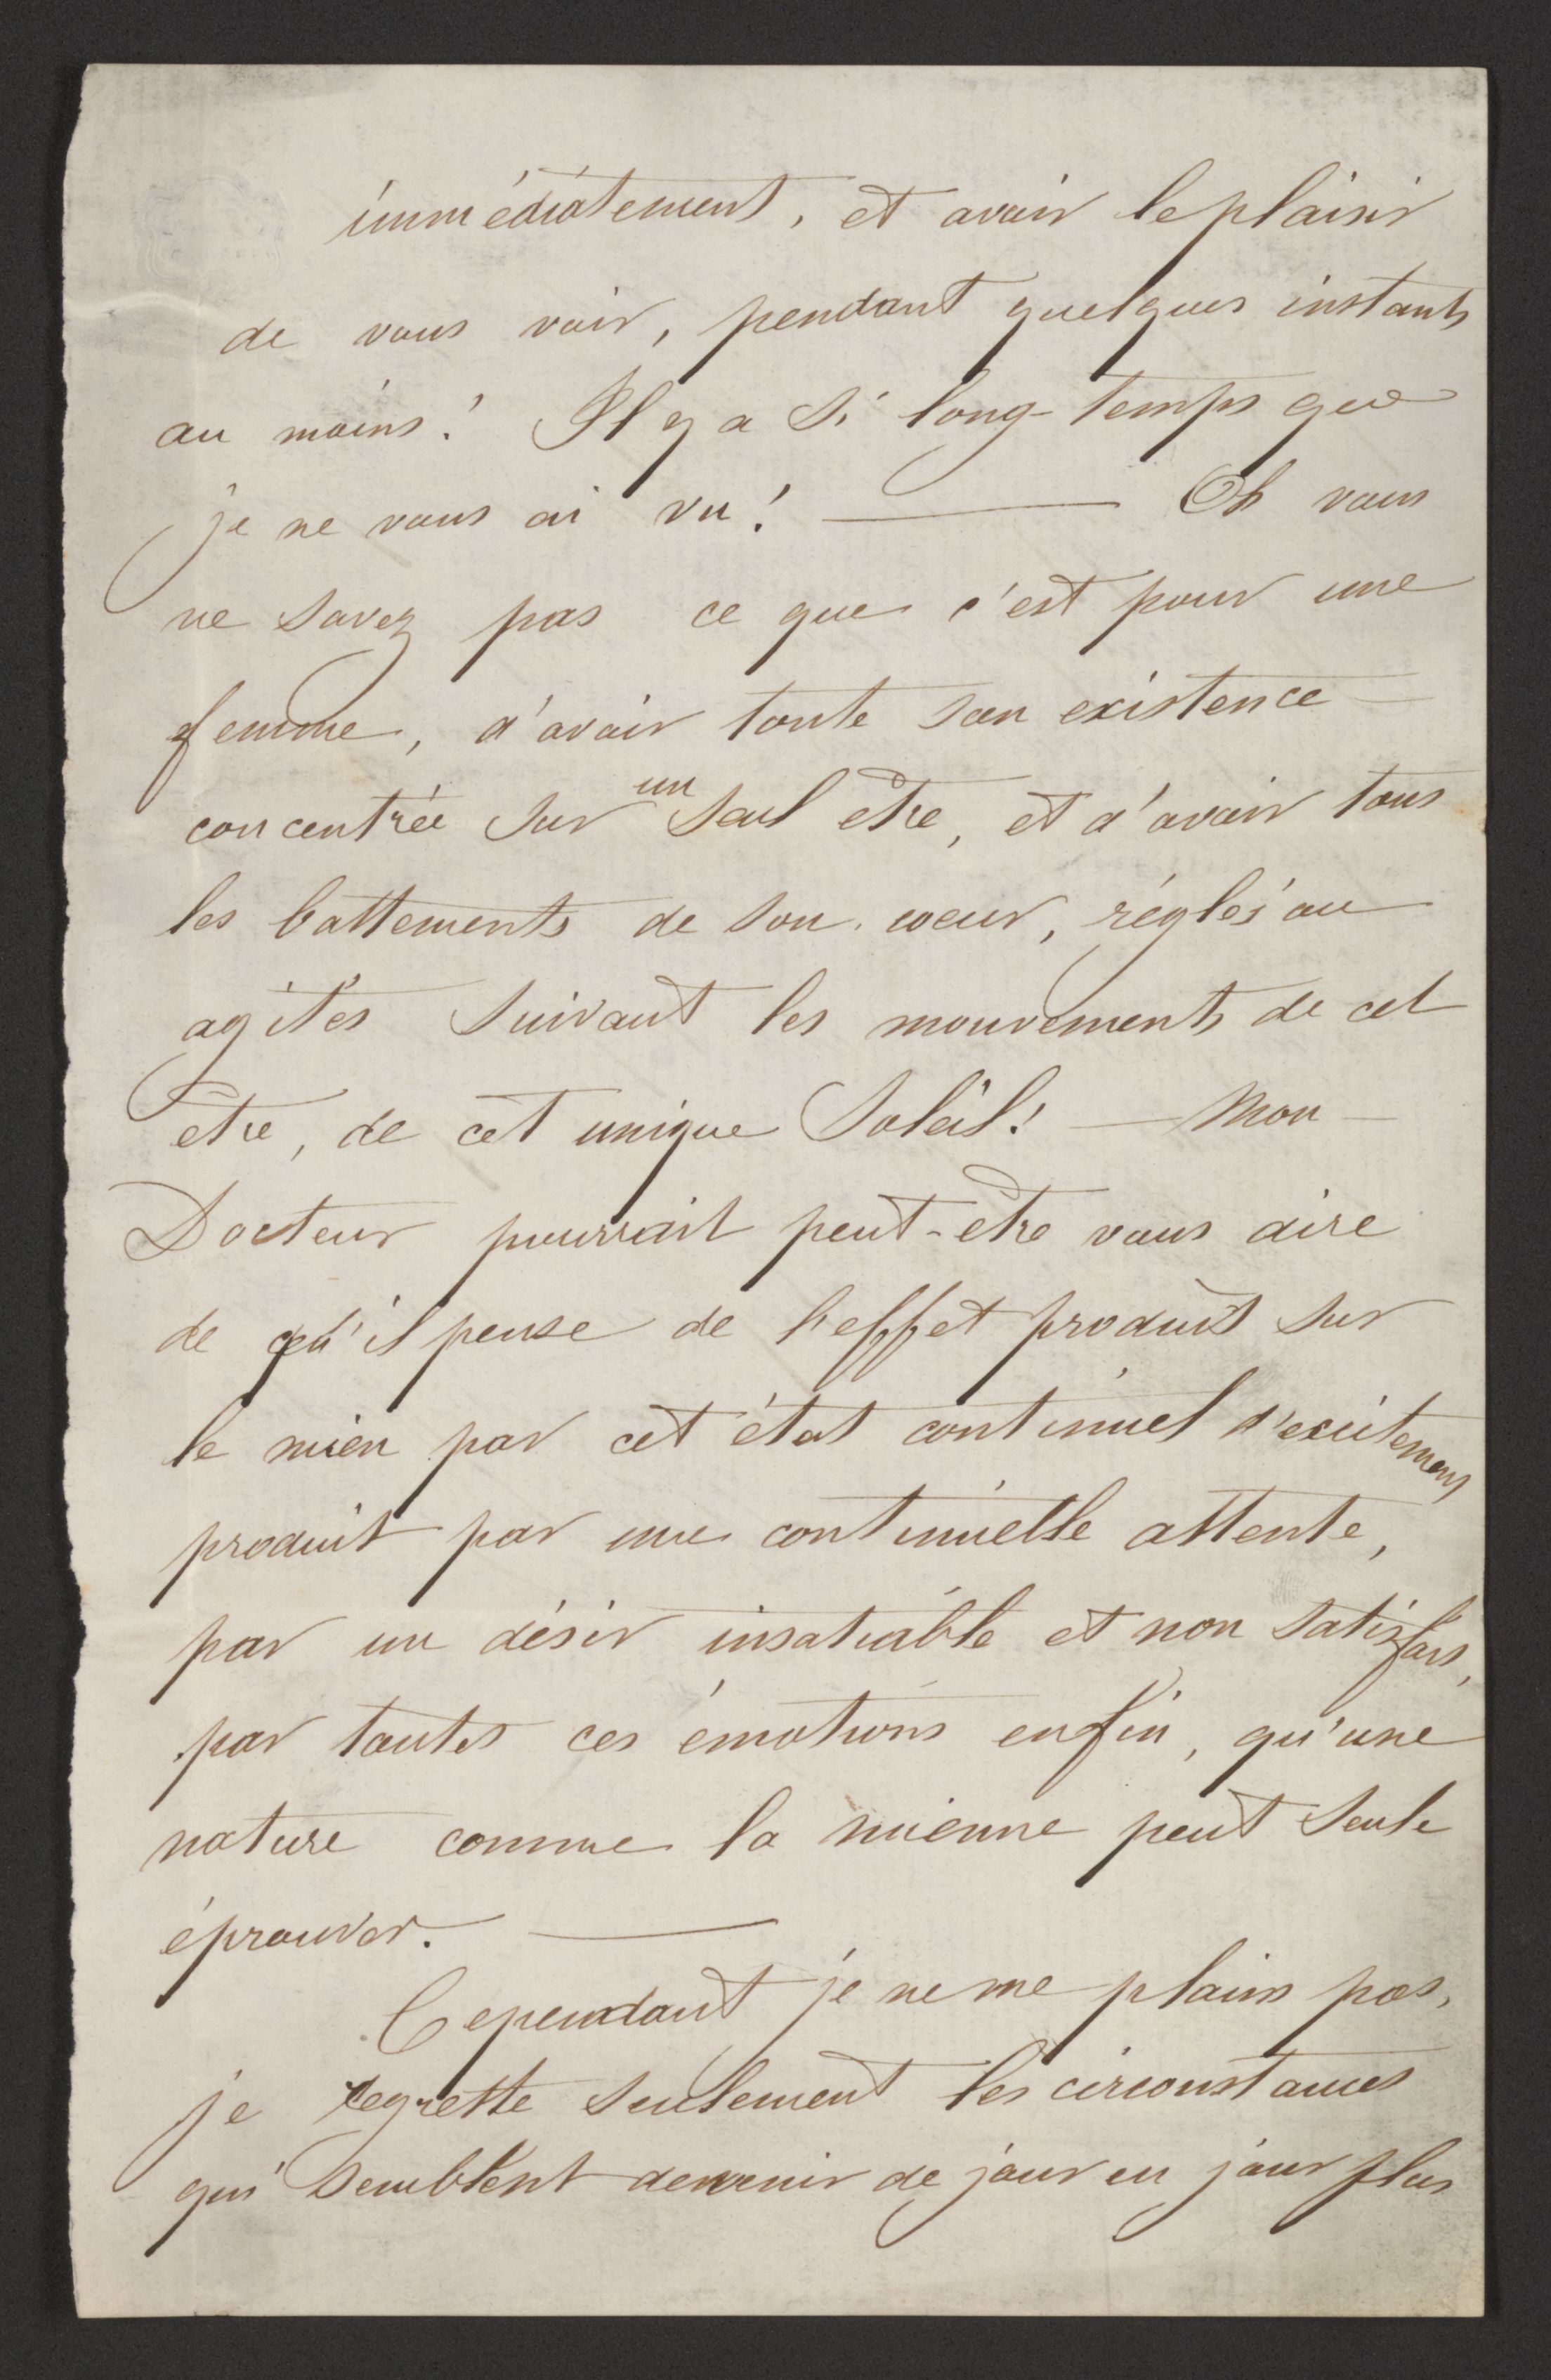 immédiatement, et avoir le plaisir
de vous voir, pendant quelques instants
au moins! Il y a si long-temps que
je ne vous ai vu! — Oh vous
ne savez pas ce que c'est pour une
femme, d'avoir toute son existence —
concentrée sur un seul être, et d'avoir tous
les battements de son coeur, réglés ou
agités suivant les mouvements de cet
être, de cet unique Soleil! — Mon —
Docteur pourrait peut-être vous dire
de qu'il pense de l'effet produit sur
le mien par cet état continuel d'excitement
produit par une continuelle attente,
par un désir insatiable et non satisfait,
par toutes ces émotions enfin, qu'une
nature comme la mienne peut seule
éprouver. —
Cependant je ne me plains pas,
je regrette seulement les circonstances
qui semblent devenir de jour en jour plus